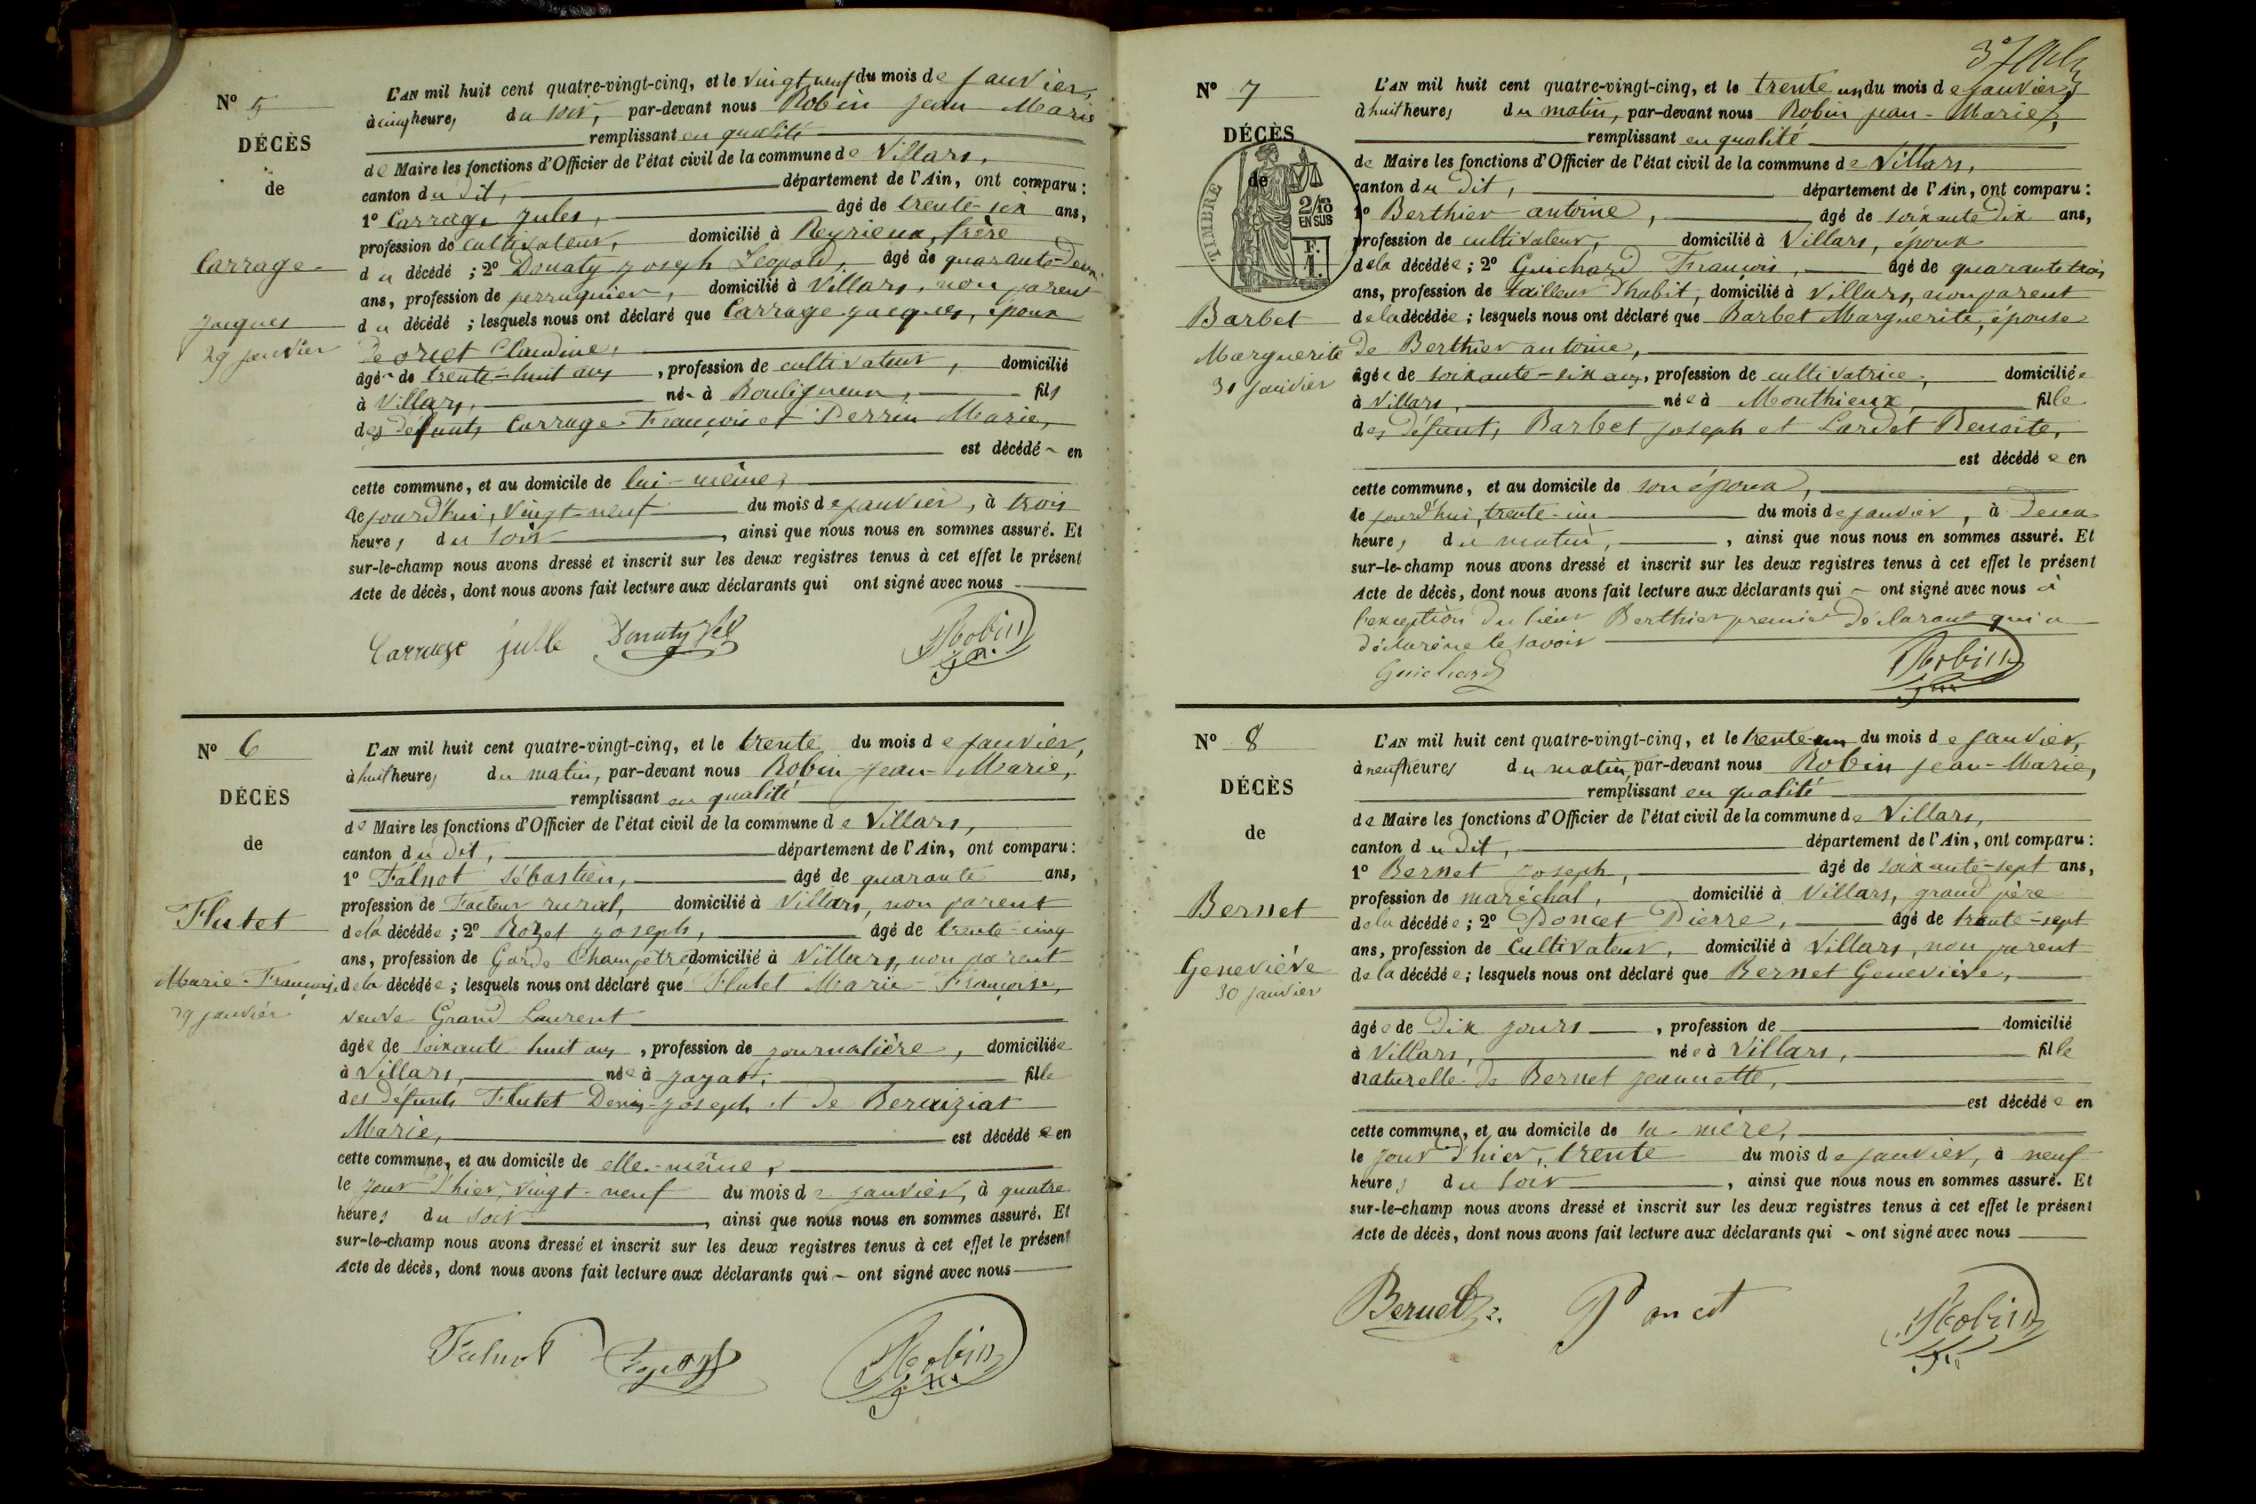 N° 5
DÉCÈS
de
Carrage
Jacques
29 janvier
L'AN mil huit cent quatre-vingt-cinq, et le vingt neuf du mois de janvier,
à cinq heures du soir, par-devant nous Robin Jean Marie
remplissant en qualité
de Maire les fonctions d'Officier de l'état civil de la commune de Villars,
canton du dit, département de l'Ain, ont comparu :
1° Carrage Jules, âgé de trente-six ans,
profession de cultivateur, domicilié à Reyrieux, frère
du décédé ; 2° Donaty Joseph Léopold, âgé de quarante-deux
ans, profession de perruquier, domicilié à Villars, non parent
du décédé ; lesquels nous ont déclaré que Carrage Jacques, époux
de Claudine,
âgé de trente-huit ans, profession de cultivateur, domicilié
à Villars, né à Bouligneux, fils
des défunts Carrage François et Perrin Marie,
est décédé en
cette commune, et au domicile de lui-même,
le jourd'hui, vingt-neuf du mois de janvier, à trois
heures du soir, ainsi que nous nous en sommes assuré. Et
sur-le-champ nous avons dressé et inscrit sur les deux registres tenus à cet effet le présent
Acte de décès, dont nous avons fait lecture aux déclarants qui ont signé avec nous
Carrage julle Donaty Robin
N° 6
DÉCÈS
de
Flutet
Marie-Françoise
29 janvier
L'AN mil huit cent quatre-vingt-cinq, et le trente du mois de janvier,
à huit heures du matin, par-devant nous Robin Jean-Marie,
remplissant en qualité
de Maire les fonctions d'Officier de l'état civil de la commune de Villars,
canton du dit, département de l'Ain, ont comparu :
1° Falnot Sébastien, âgé de quarante ans,
profession de Facteur rural, domicilié à Villars, non parent
de la décédée ; 2° Rozet Joseph, âgé de trente-cinq
ans, profession de Garde Champêtre domicilié à Villars, non parent
de la décédée ; lesquels nous ont déclaré que Flutet Marie-Françoise,
veuve Grand Laurent
âgée de soixante huit ans, profession de journalière, domiciliée
à Villars, née à Jayat, fille
des défunts Flutet Denis-Joseph et de Beraiziat
Marie, est décédée en
cette commune, et au domicile de elle-même,
le jour d'hier, vingt-neuf du mois de janvier, à quatre
heures du soir, ainsi que nous nous en sommes assuré. Et
sur-le-champ nous avons dressé et inscrit sur les deux registres tenus à cet effet le présent
Acte de décès, dont nous avons fait lecture aux déclarants qui ont signé avec nous
Falnot Robin
N° 7
DÉCÈS
de
TIMBRE
2/10
EN SUS
F.
1.
Barbet
Marguerite
31 janvier
L'AN mil huit cent quatre-vingt-cinq, et le trente un du mois de janvier,
à huit heures du matin, par-devant nous Robin Jean-Marie,
remplissant en qualité
de Maire les fonctions d'Officier de l'état civil de la commune de Villars,
canton du dit, département de l'Ain, ont comparu :
1° Berthier antoine, âgé de soixante dix ans,
profession de cultivateur, domicilié à Villars, époux
de la décédée ; 2° Guichard François, âgé de quarante trois
ans, profession de tailleur d'habit, domicilié à Villars, non parent
de la décédée ; lesquels nous ont déclaré que Barbet Marguerite, épouse
de Berthier antoine,
âgée de soixante-six ans, profession de cultivatrice, domiciliée
à Villars, née à Monthieux, fille
des défunts, Barbet Joseph et Lardet Benoite,
est décédée en
cette commune, et au domicile de son époux,
le jourd'hui, trente-un du mois de janvier, à deux
heures du matin, ainsi que nous nous en sommes assuré. Et
sur-le-champ nous avons dressé et inscrit sur les deux registres tenus à cet effet le présent
Acte de décès, dont nous avons fait lecture aux déclarants qui ont signé avec nous à
l'exception du sieur Berthier premier déclarant qui a
déclaré ne le savoir
Guichard Robin
N° 8
DÉCÈS
de
Bernet
Geneviève
30 janvier
L'AN mil huit cent quatre-vingt-cinq, et le trente-un du mois de janvier,
à neuf heures du matin, par-devant nous Robin Jean-Marie,
remplissant en qualité
de Maire les fonctions d'Officier de l'état civil de la commune de Villars,
canton du dit, département de l'Ain, ont comparu :
1° Bernet Joseph, âgé de soixante-sept ans,
profession de maréchal, domicilié à Villars, grand père
de la décédée ; 2° Poncet Pierre, âgé de trente-sept
ans, profession de Cultivateur, domicilié à Villars, non parent
de la décédée ; lesquels nous ont déclaré que Bernet Geneviève,
âgée de dix jours, profession de domicilié
à Villars, née à Villars, fille
naturelle de Bernet Jeannette,
est décédée en
cette commune, et au domicile de sa mère,
le jour d'hier, trente du mois de janvier, à neuf
heures du soir, ainsi que nous nous en sommes assuré. Et
sur-le-champ nous avons dressé et inscrit sur les deux registres tenus à cet effet le présent
Acte de décès, dont nous avons fait lecture aux déclarants qui ont signé avec nous
Bernet Poncet Robin